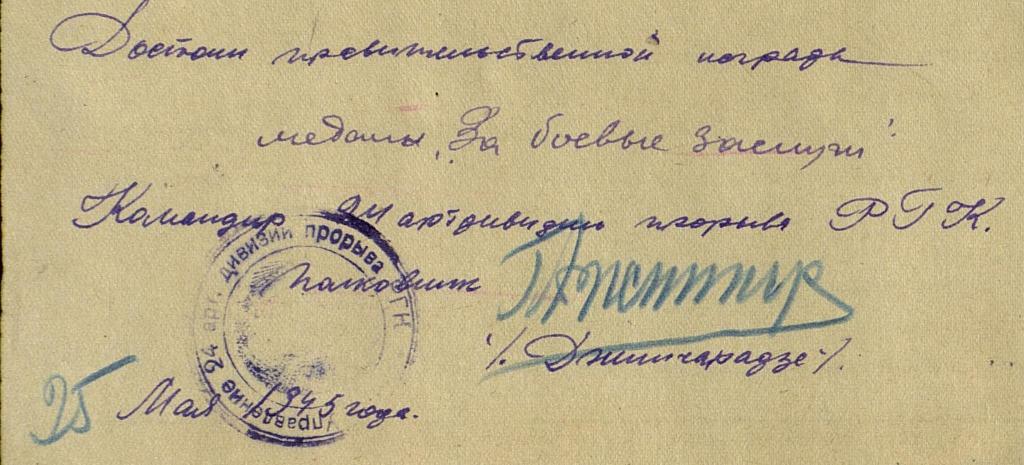 Достоин правительственной награды
медали "За боевые заслуги"
Командир 24 артдивизии прорыва РГК.
Полковник
/. Джинчарадзе ./.
25 Мая 1945 года.
Управление 24 арт. дивизии прорыва РГК